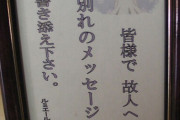 皆様で 故人へ
別れのメッセージ
書き添え下さい。